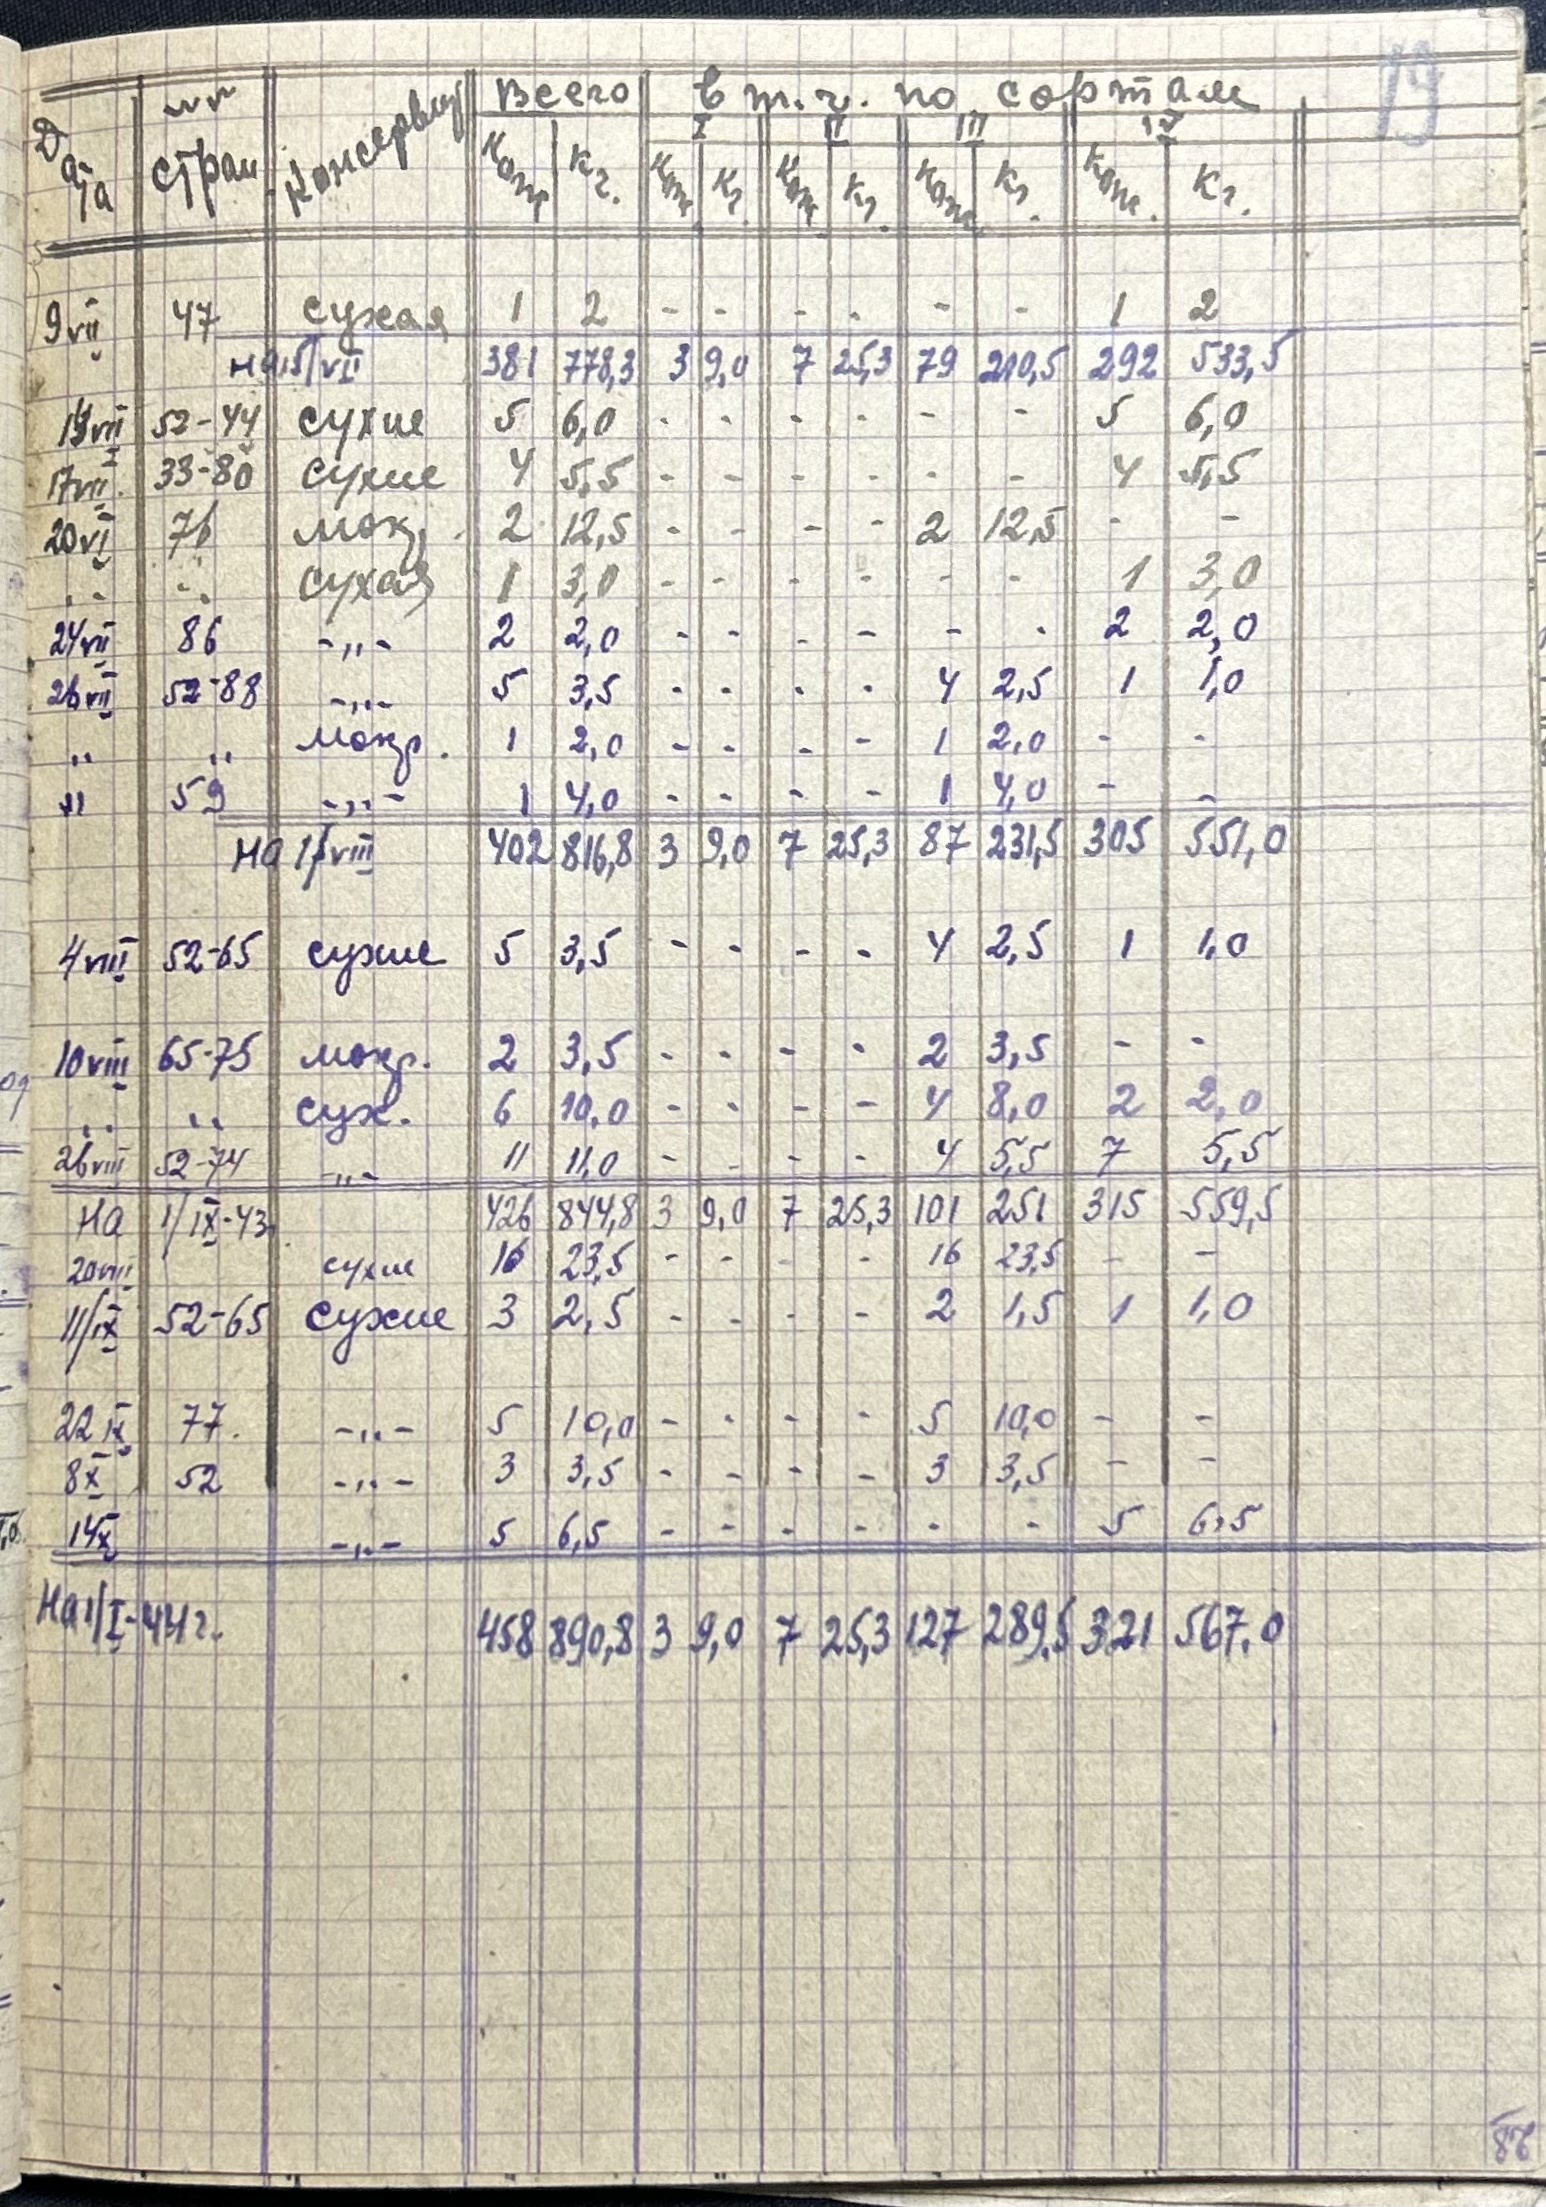 19
Дата №№ стран. Консервир. Всего в т.ч. по сортам
I II III IV
Кож. кг. Кож. кг. Кож. кг. Кож. кг. Кож. кг.
9 VII 47 сухая 1 2 - - - - - - 1 2
на 15/VII 381 778,3 3 9,0 7 25,3 79 210,5 292 533,5
14 VII 52-44 сухие 5 6,0 - - - - - - 5 6,0
17 VII 33-80 сухие 4 5,5 - - - - - - 4 5,5
20 VI 76 мокр. 2 12,5 - - - - 2 12,5 - -
,, ,, сухая 1 3,0 - - - - - - 1 3,0
24 VII 86 -,,- 2 2,0 - - - - - - 2 2,0
26 VII 52-88 -,,- 5 3,5 - - - - 4 2,5 1 1,0
,, ,, мокр. 1 2,0 - - - - 1 2,0 - -
,, 59 -,,- 1 4,0 - - - - 1 4,0 - -
на 1/VIII 402 816,8 3 9,0 7 25,3 87 231,5 305 551,0
4 VIII 52-65 сухие 5 3,5 - - - - 4 2,5 1 1,0
10 VIII 65-75 мокр. 2 3,5 - - - - 2 3,5 - -
,, ,, сух. 6 10,0 - - - - 4 8,0 2 2,0
26 VIII 52-74 -,,- 11 11,0 - - - - 4 5,5 7 5,5
на 1/IX-43г. 426 844,8 3 9,0 7 25,3 101 251 315 559,5
20 VIII сухие 16 23,5 - - - - 16 23,5 - -
11/IX 52-65 сухие 3 2,5 - - - - 2 1,5 1 1,0
22 IX 77. -,,- 5 10,0 - - - - 5 10,0 - -
8 X 52 -,,- 3 3,5 - - - - 3 3,5 - -
14 X -,,- 5 6,5 - - - - - - 5 6,5
На 1/I-44 г. 458 890,8 3 9,0 7 25,3 127 289,5 321 567,0